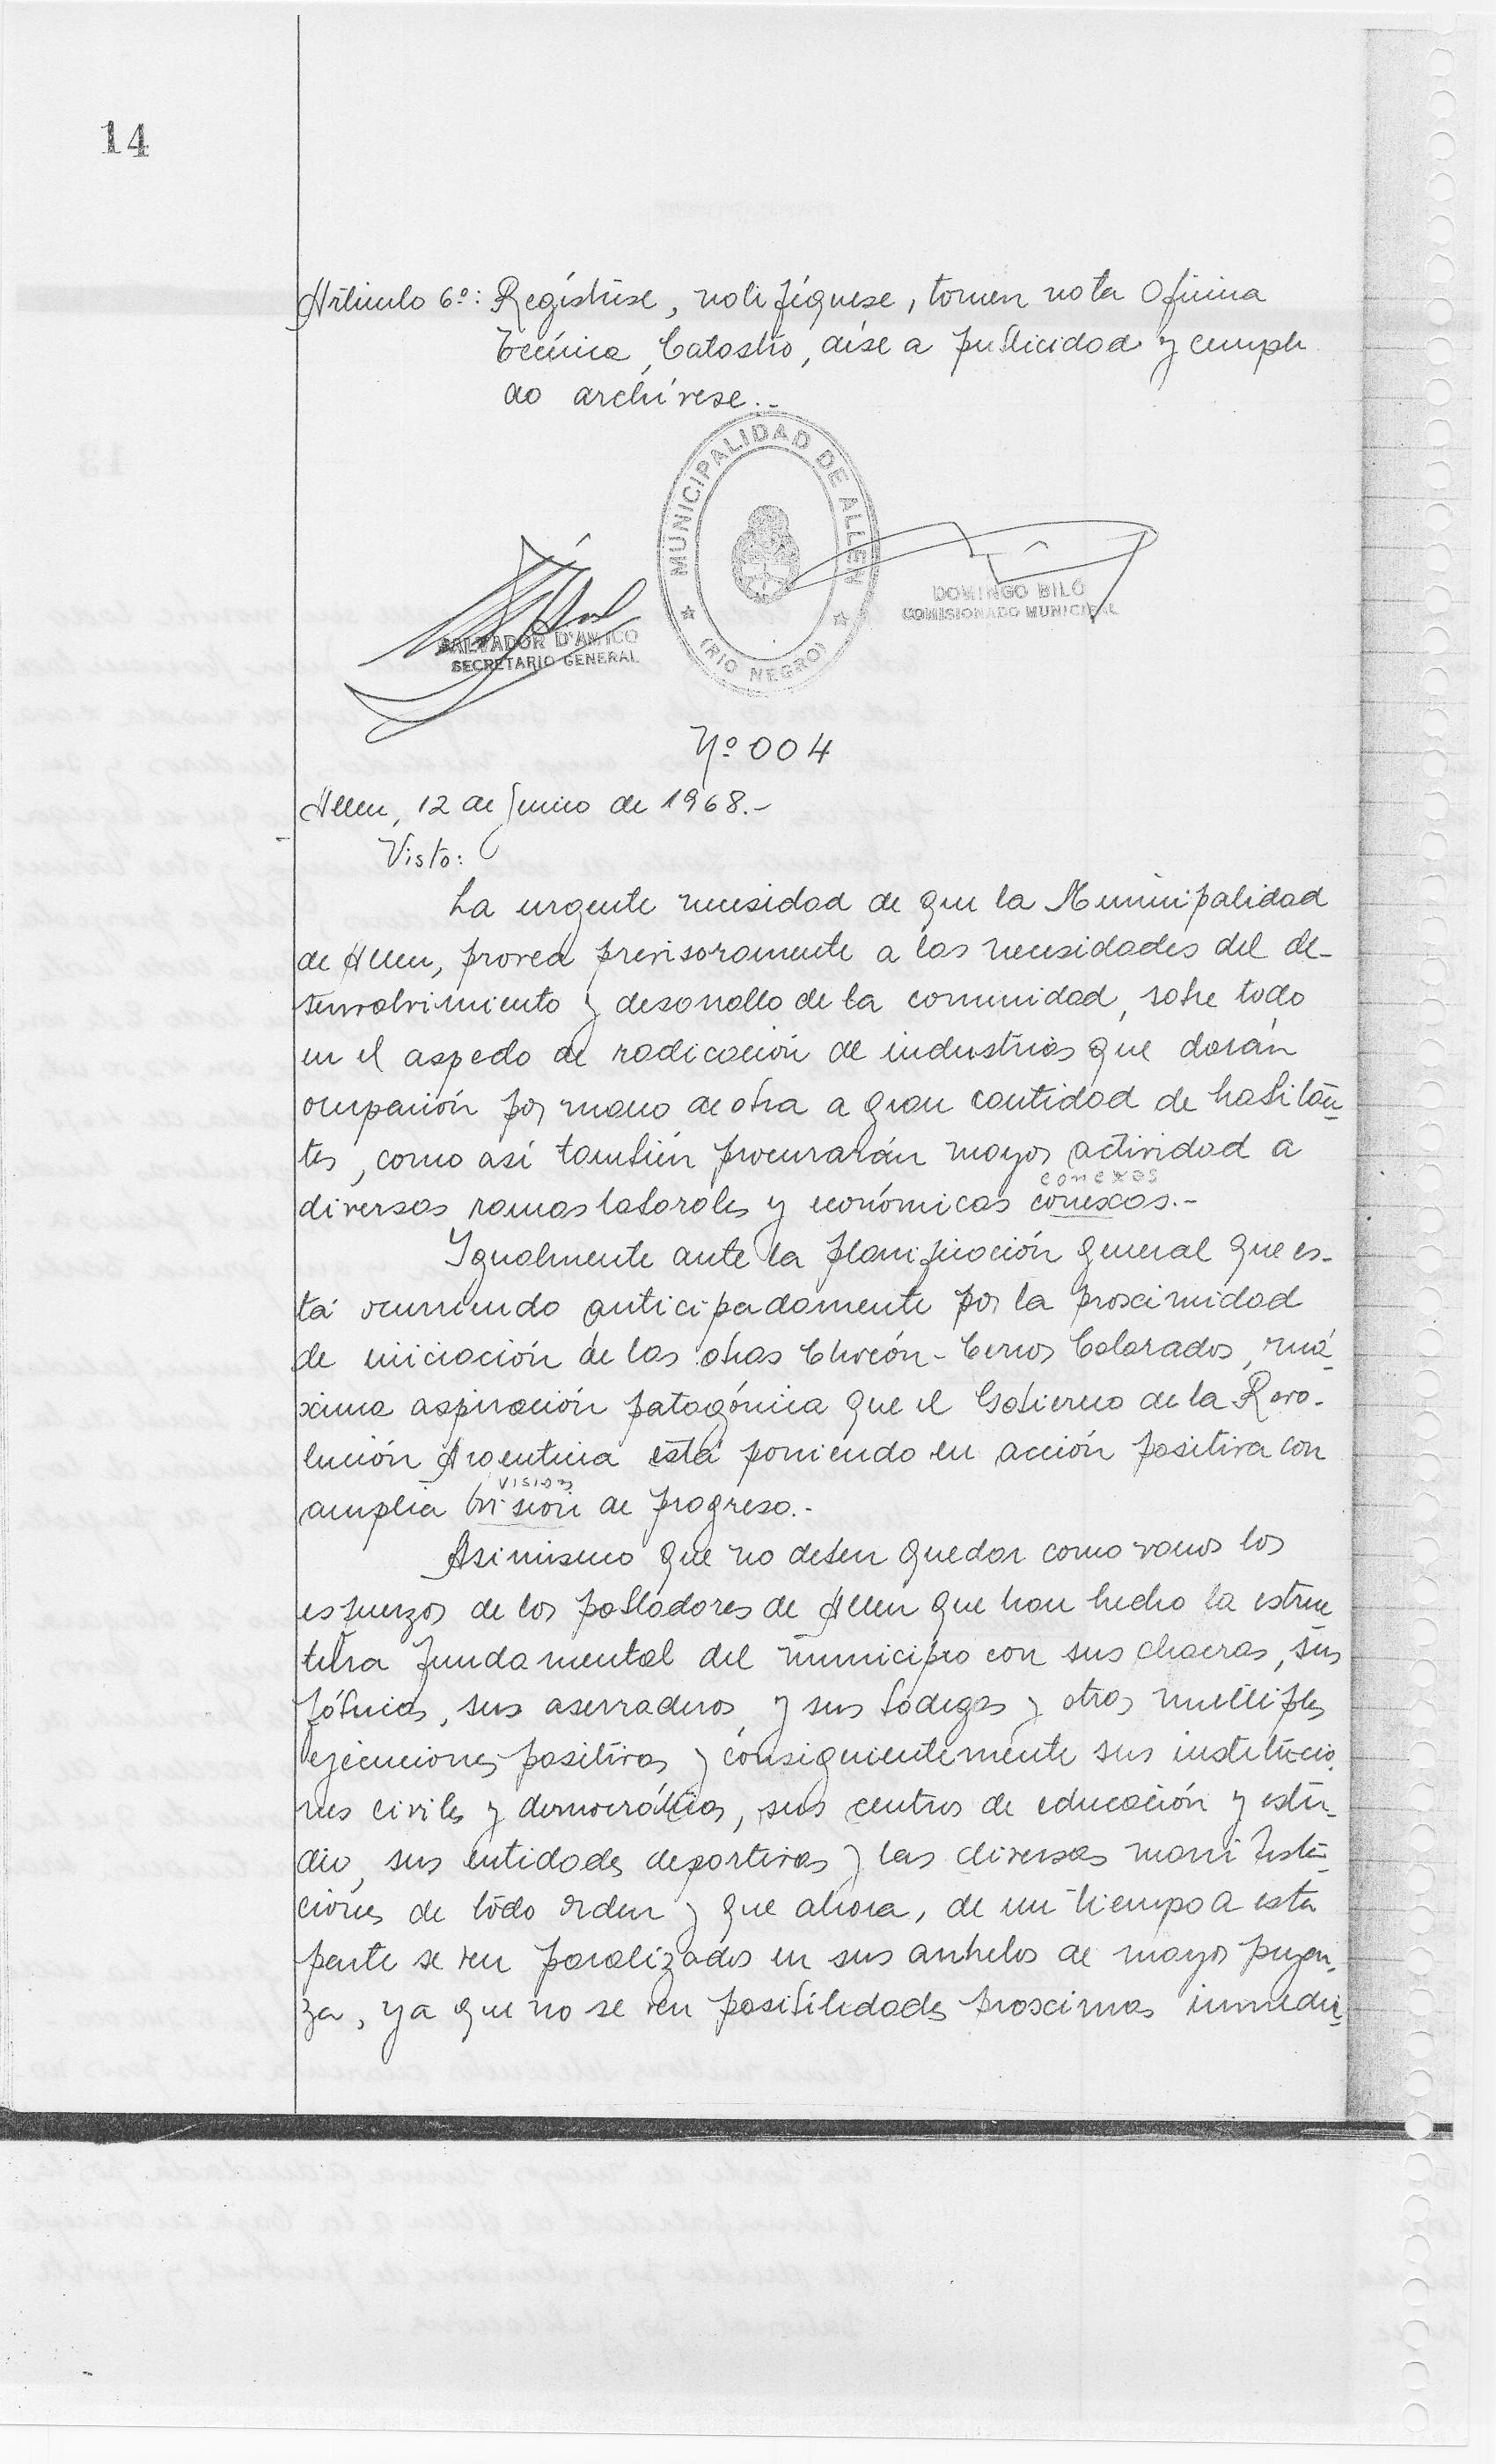 14
Artículo 6º: Regístrese, notifíquese, tomen nota Oficina
Técnica, Catastro, dése a publicidad y cumpli
do archívese.-
MUNICIPALIDAD DE ALLEN
(RIO NEGRO)
DOMINGO BILÓ
COMISIONADO MUNICIPAL
SALVADOR D'AMICO
SECRETARIO GENERAL
Nº 004
Allen, 12 de Junio de 1968.-
Visto:
La urgente necesidad de que la Municipalidad
de Allen, provea previsoramente a las necesidades del de-
senvolvimiento y desarrollo de la comunidad, sobre todo
en el aspecto de radicación de industrias que darán
ocupación por mano de obra a gran cantidad de habitan-
tes, como así también procurarán mayor actividad a
conexas
diversas ramas laborales y económicas conexas.-
Igualmente ante la planificación general que es-
tá ocurriendo anticipadamente por la proximidad
de iniciación de las obras Chocón - Cerros Colorados, má-
xima aspiración patagónica que el Gobierno de la Revo-
lución Argentina está poniendo en acción positiva con
visión
amplia visión de progreso.-
Asimismo que no deben quedar como vanos los
esfuerzos de los pobladores de Allen que han hecho la estruc
tura fundamental del municipio con sus chacras, sus
fábricas, sus aserraderos y sus bodegas y otras multiples
ejecuciones positivas y consiguientemente sus institucio-
nes civiles y democráticas, sus centros de educación y estu-
dio, sus entidades deportivas y las diversas manifesta-
ciones de todo orden y que ahora, de un tiempo a esta
parte se ven paralizados en sus anhelos de mayor pujan-
za, ya que no se ven posibilidades proximas inmedia-